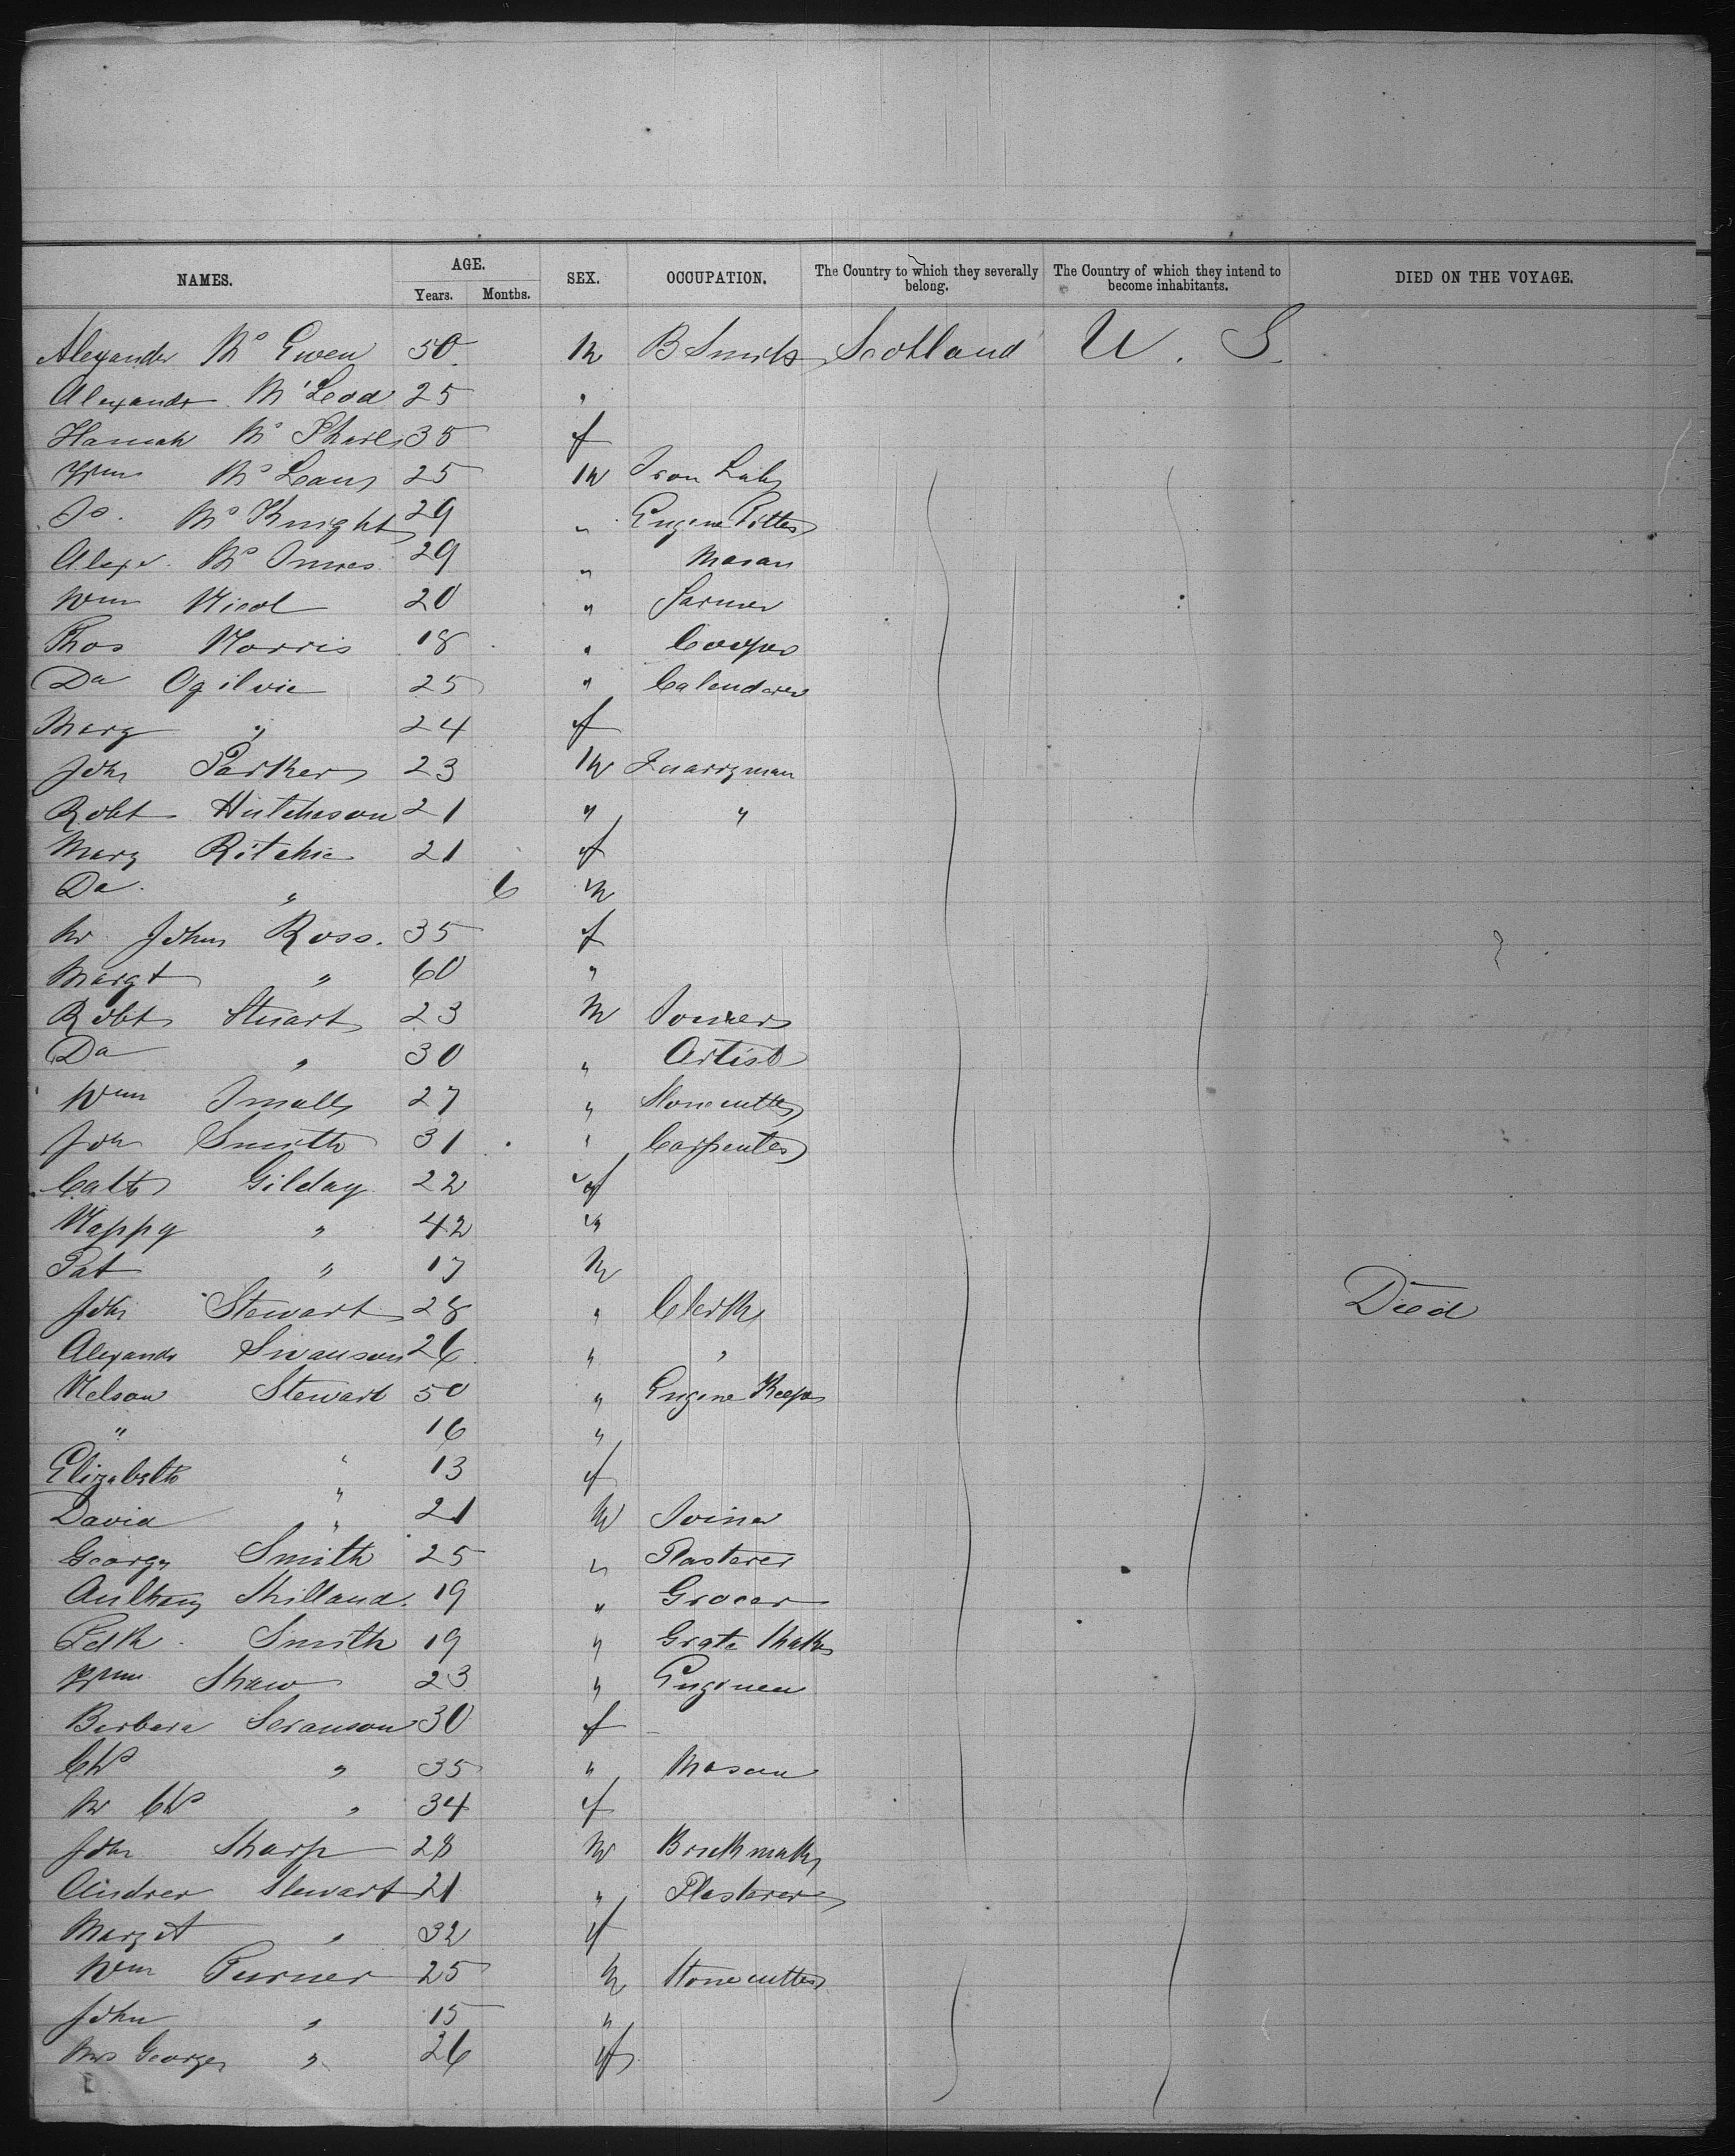 NAMES. AGE. SEX. OCCUPATION. The Country to which they severally belong. The Country of which they intend to become inhabitants. DIED ON THE VOYAGE.
Years. Months.
Alexander Mc Ewen 50 M B Smith Scotland U. S.
Alexandr McLeod 25 "
Hannah Mc 35 f
Wm McLean 25 M Iron Labr
Jo. Mc Knight 29 " Engine Fitter
Alexr. Mc Innes 29 " Mason
Wm Nicol 20 " Farmer
Thos Norris 18 " Cooper
Da Ogilvie 25 " Calenderer
Mary " 24 f
John Parker 23 M Quarryman
Robt Hutcheson 21 " "
Mary Ritchie 21 f
Da. " 6 M
Mr John Ross. 35 f
Margt " 60 "
Robt Stuart 23 M
Da " 30 " Artist
Wm Small 27 " Stonecutter
John Smith 31 " Carpenter
Cath Gilday 22 f
Nappy " 42 "
Pat " 17 M
John Stewart 28 " Clerk Died
Alexandr Swanson 26 " "
Nelson Stewart 50 " Engine Keeper
" 16 "
Elizabeth " 13 f
David " 21 M Joiner
George Smith 25 " Plasterer
Anthony 19 " Grocer
Smith 19 " Grate Maker
Wm Shaw 23 " Engineer
Barbara Swanson 30 f
Chs " 35 " Mason
Mr Chs " 34 f
John Sharp 28 M Brickmaker
Andrew Stewart 21 " Plasterer
Margt " 32 f
Wm Turner 25 M Stonecutter
John " 15 "
Mrs George " 26 f